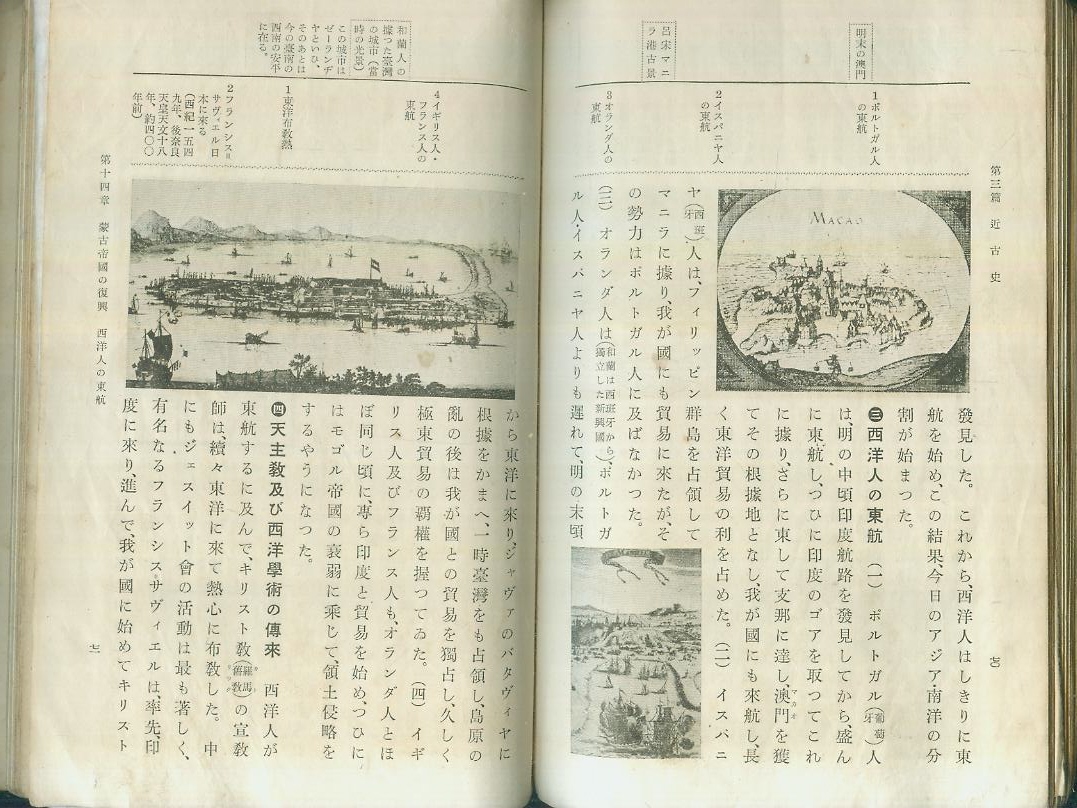 第三篇 近古史
明末の澳門
呂宋マニ
ラ港古景
1 ポルトガル人
の東航
2 イスパニヤ人
の東航
3 オランダ人の
東航
MACAO
發見した。これから、西洋人はしきりに東
航を始め、この結果、今日のアジア・南洋の分
割が始まつた。
㊂ 西洋人の東航 (一) ポルトガル(葡萄牙)人
は、明の中頃印度航路を發見してから、盛ん
に東航し、つひに印度のゴアを取つてこれ
に據り、さらに東して支那に達し、澳門を獲
マカオ
てその根據地となし、我が國にも來航し、長
く東洋貿易の利を占めた。(二) イスパニ
ヤ(西班牙)人は、フィリッピン群島を占領して
マニラに據り、我が國にも貿易に來たが、そ
の勢力はポルトガル人に及ばなかつた。
(三) オランダ人は(和蘭は西班牙から獨立した新興國)、ポルトガ
ル人・イスパニヤ人よりも遲れて、明の末頃
和蘭人の
據つた臺灣
の城市(當
時の光景)
この城市は
ゼーランヂ
ヤといひ、
そのあとは
今の臺南の
西南の安平
に在る。
4 イギリス人・
フランス人の
東航
1 東洋布敎熱
2 フランシス゠
サヴィエル日
本に來る
(西紀一五四
九年、後奈良
天皇天文十八
年、約四〇〇
年前)
から東洋に來り、ジャヴァのバタヴィヤに
根據をかまへ、一時臺灣をも占領し、島原の
亂の後は我が國との貿易を獨占し、久しく
極東貿易の覇權を握つてゐた。(四) イギ
リス人及びフランス人も、オランダ人とほ
ぼ同じ頃に、專ら印度と貿易を始め、つひに
はモゴル帝國の衰弱に乘じて、領土侵略を
するやうになつた。
㊃ 天主敎及び西洋學術の傳來 西洋人が
東航するに及んで、キリスト敎(羅馬舊敎)の宣敎
師は、續々東洋に來て熱心に布敎した。中
にもジェスイット會の活動は最も著しく、
有名なるフランシス゠サヴィエルは、率先、印
度に來り、進んで、我が國に始めてキリスト
第十四章 蒙古帝國の復興 西洋人の東航